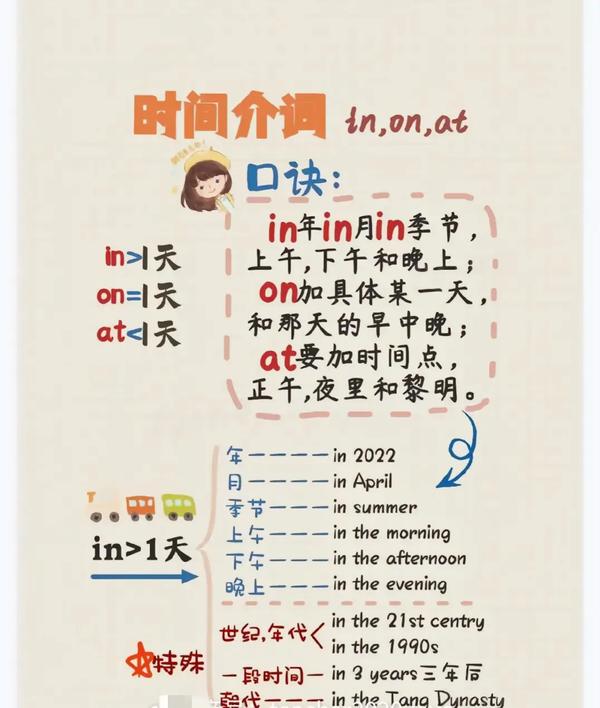 时间介词 in,on,at
口诀：
in年in月in季节，
上午,下午和晚上；
on加具体某一天，
和那天的早中晚；
at要加时间点，
正午,夜里和黎明。
in>1天
on=1天
at<1天
in>1天
年————in 2022
月————in April
季节———in summer
上午———in the morning
下午———in the afternoon
晚上———in the evening
特殊
世纪,年代
in the 21st centry
in the 1990s
一段时间—in 3 years三年后
朝代———in the Tang Dynasty